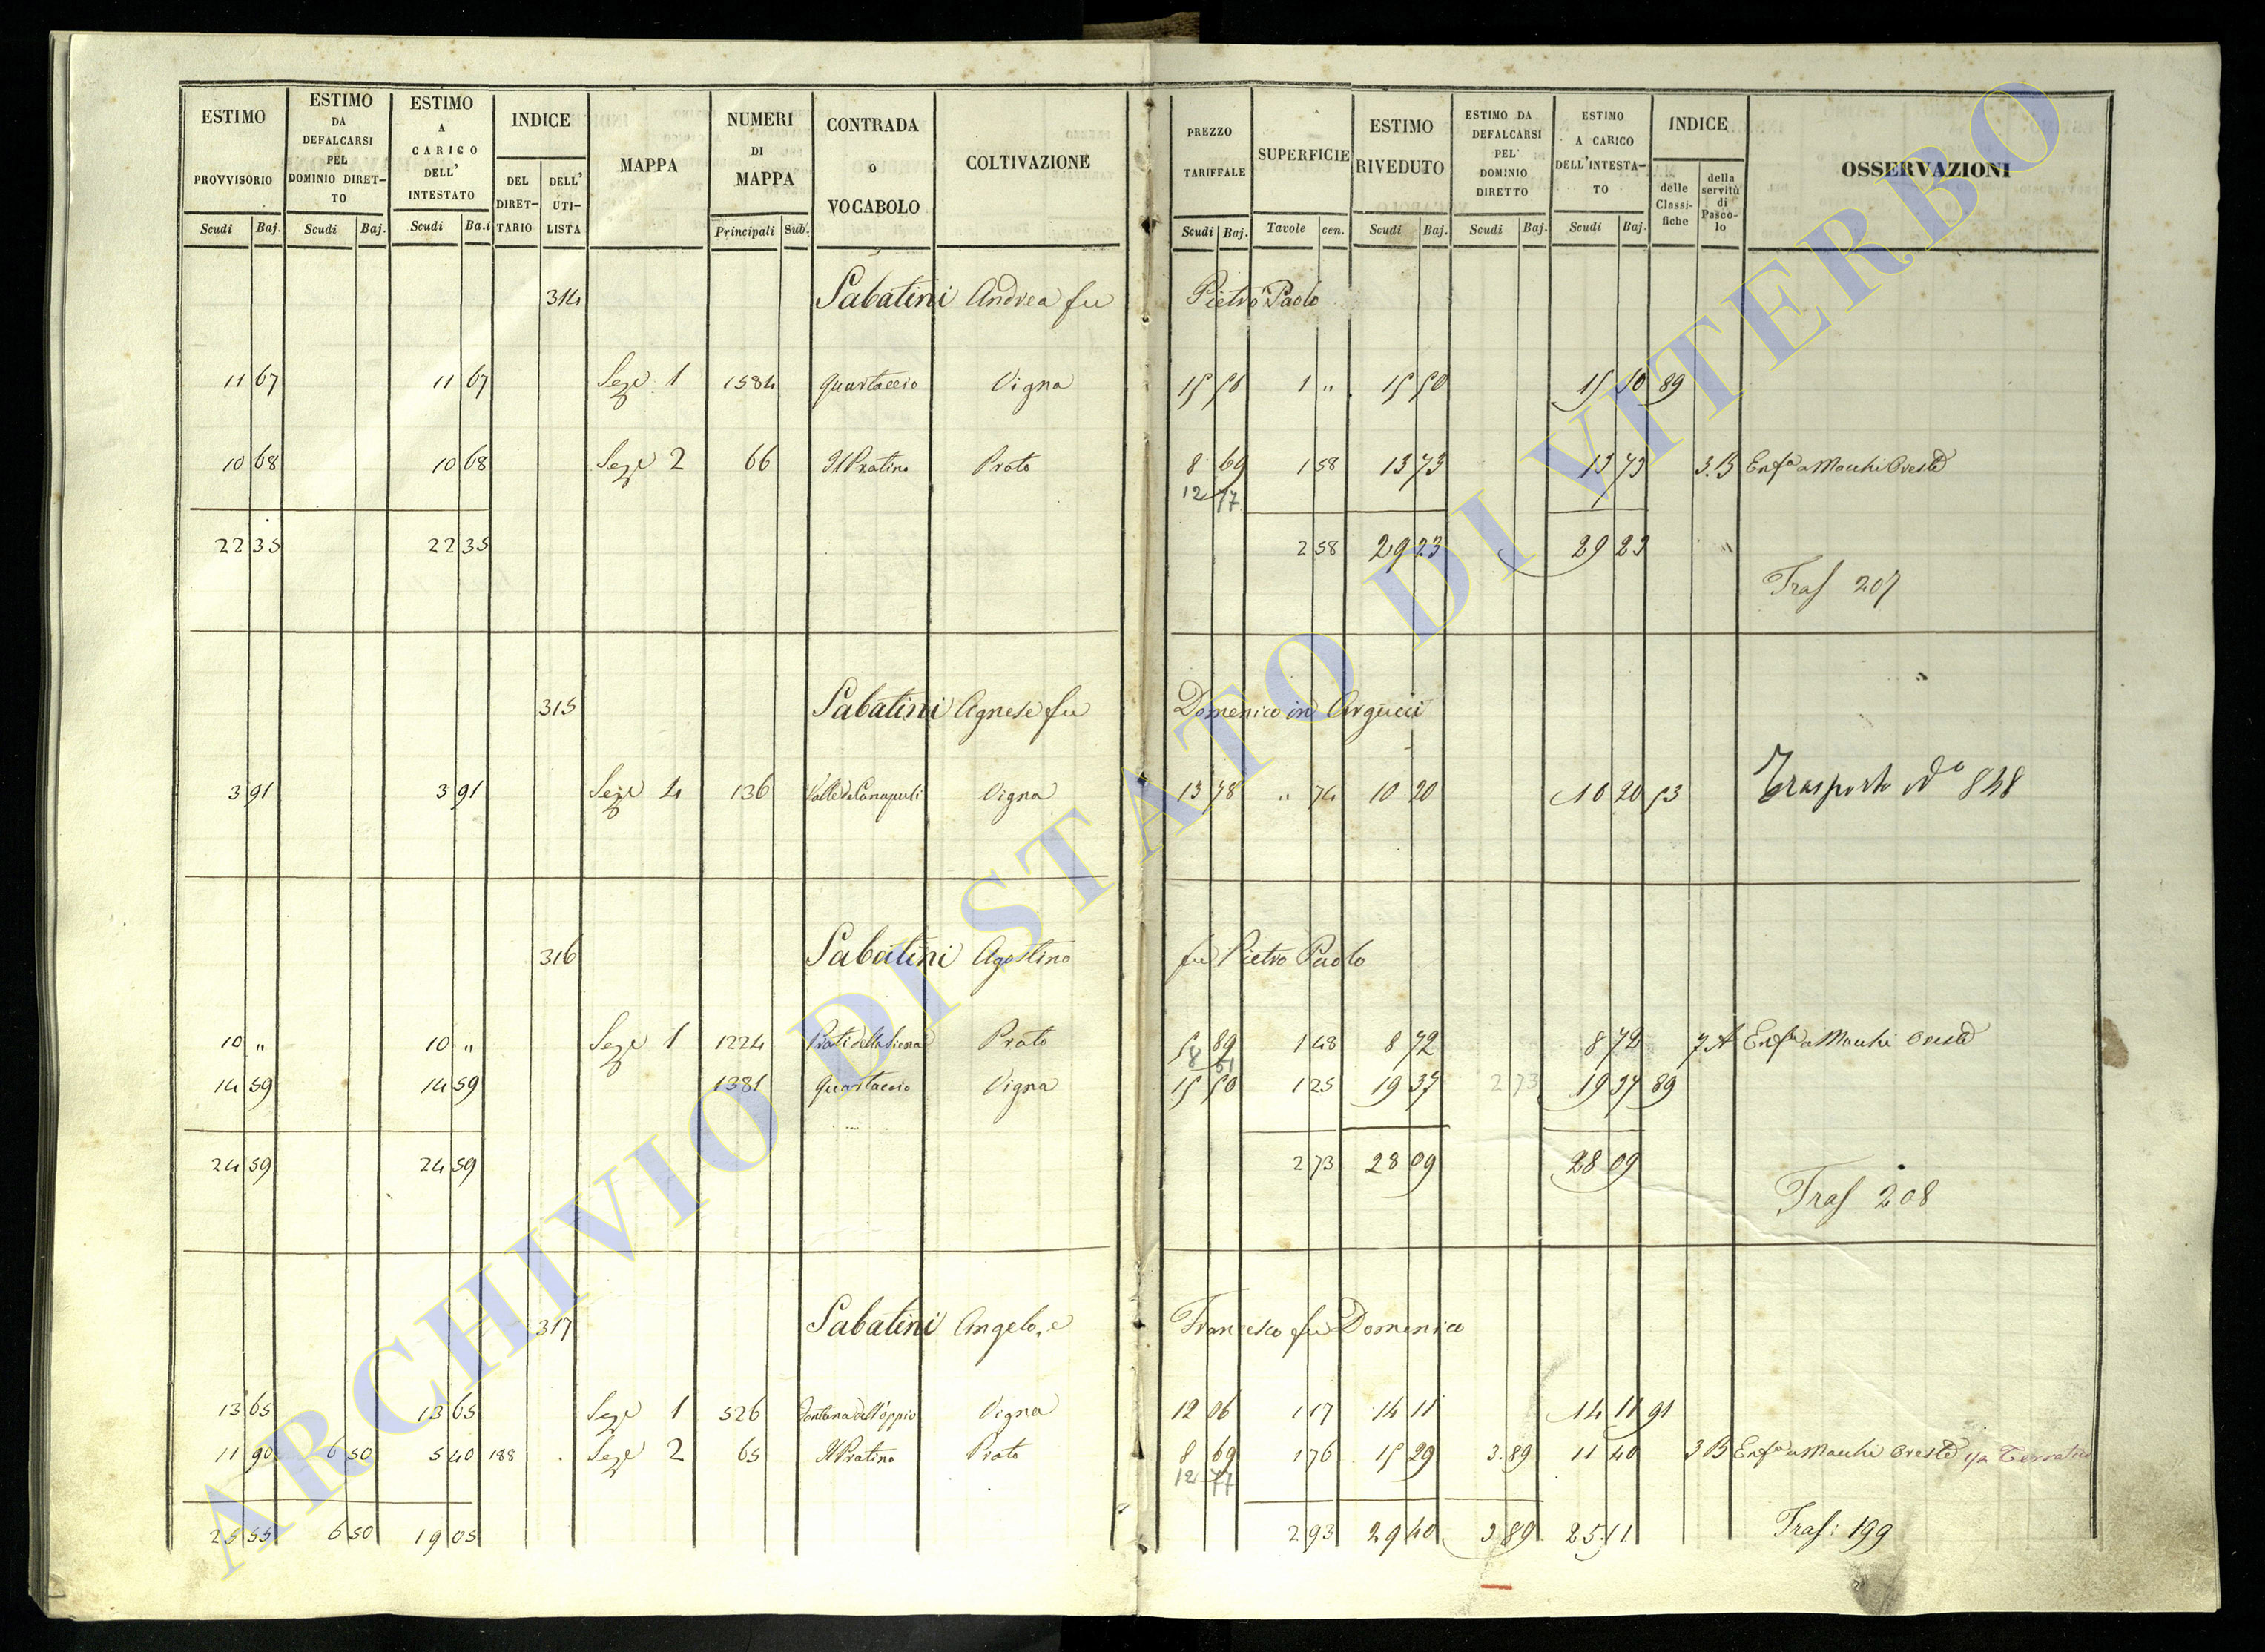 ESTIMO PROVVISORIO Scudi Baj.
ESTIMO DA DEFALCARSI PEL DOMINIO DIRET-TO Scudi Baj.
ESTIMO A CARICO DELL' INTESTATO Scudi Ba.i
INDICE DEL DIRET-TARIO DELL' UTI-LISTA
MAPPA
NUMERI DI MAPPA Principali Sub.
CONTRADA o VOCABOLO
COLTIVAZIONE
PREZZO TARIFFALE Scudi Baj.
SUPERFICIE Tavole cen.
ESTIMO RIVEDUTO Scudi Baj.
ESTIMO DA DEFALCARSI PEL DOMINIO DIRETTO Scudi Baj.
ESTIMO A CARICO DELL'INTESTA-TO Scudi Baj.
INDICE delle Classi-fiche della servitù di Pasco-lo
OSSERVAZIONI
314 Sabatini Andrea fu Pietro Paolo
11 67 11 67 Sez.e 1 1584 Quartaccio Vigna 15 50 1 " 15 50 15 50 89
10 68 10 68 Sez.e 2 66 Il Pratino Prato 8 69 1 58 13 73 13 73 3.B Enf.a a Macchi Oreste
12 77
22 35 22 35 2 58 29 23 29 23
Traf 207
315 Sabatini Agnese fu Domenico in Argucci
3 91 3 91 Sez.e 4 136 Vigna 13 78 " 74 10 20 10 20 53 Trasporto N° 848
316 Sabatini Agostino fu Pietro Paolo
10 " 10 " Sez.e 1 1224 Prati della Prato 5 89 1 48 8 72 8 72 7.A Enf.a a Macchi Oreste
8 61
14 59 14 59 1381 Quartaccio Vigna 15 50 1 25 19 37 2 73 19 37 89
24 59 24 59 2 73 28 09 28 09
Traf 208
317 Sabatini Angelo, e Francesco fu Domenico
13 65 13 65 Sez.e 1 526 Fontana dell'oppio Vigna 12 06 1 17 14 11 14 11 91
11 90 6 50 5 40 188 Sez.e 2 65 Il Pratino Prato 8 69 1 76 15 29 3.89 11 40 3 B Enf.a a Macchi Oreste
12 77
25 55 6 50 19 05 2 93 29 40 3 89 25 11 Traf: 199
ARCHIVIO DI STATO DI VITERBO